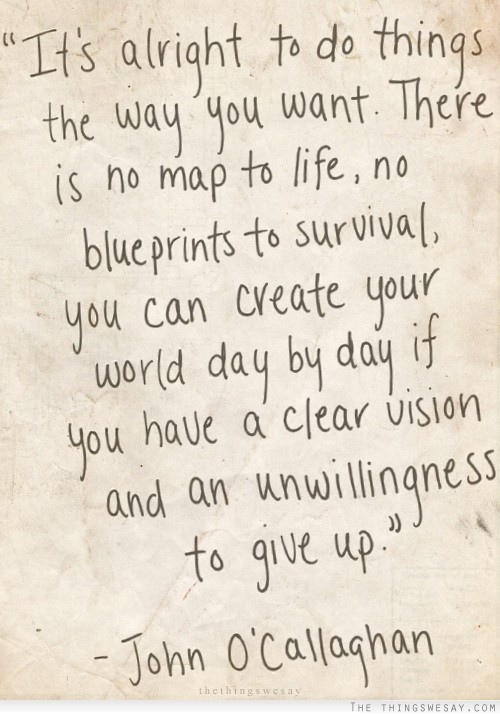 “It's alright to do things
the way you want. There
is no map to life, no
blueprints to survival,
you can create your
world day by day if
you have a clear vision
and an unwillingness
to give up.”
- John O'Callaghan
thethingswesay
THE THINGSWESAY.COM